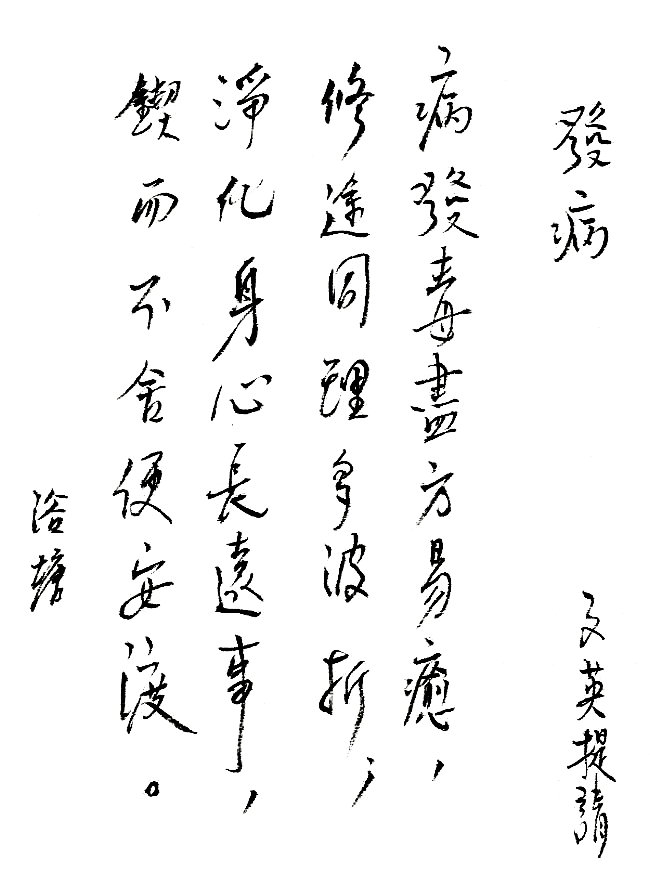 發病
文英提請
病發毒盡方易癒，
修途同理多波折；
淨化身心長遠事，
鍥而不舍便安渡。
浴塘